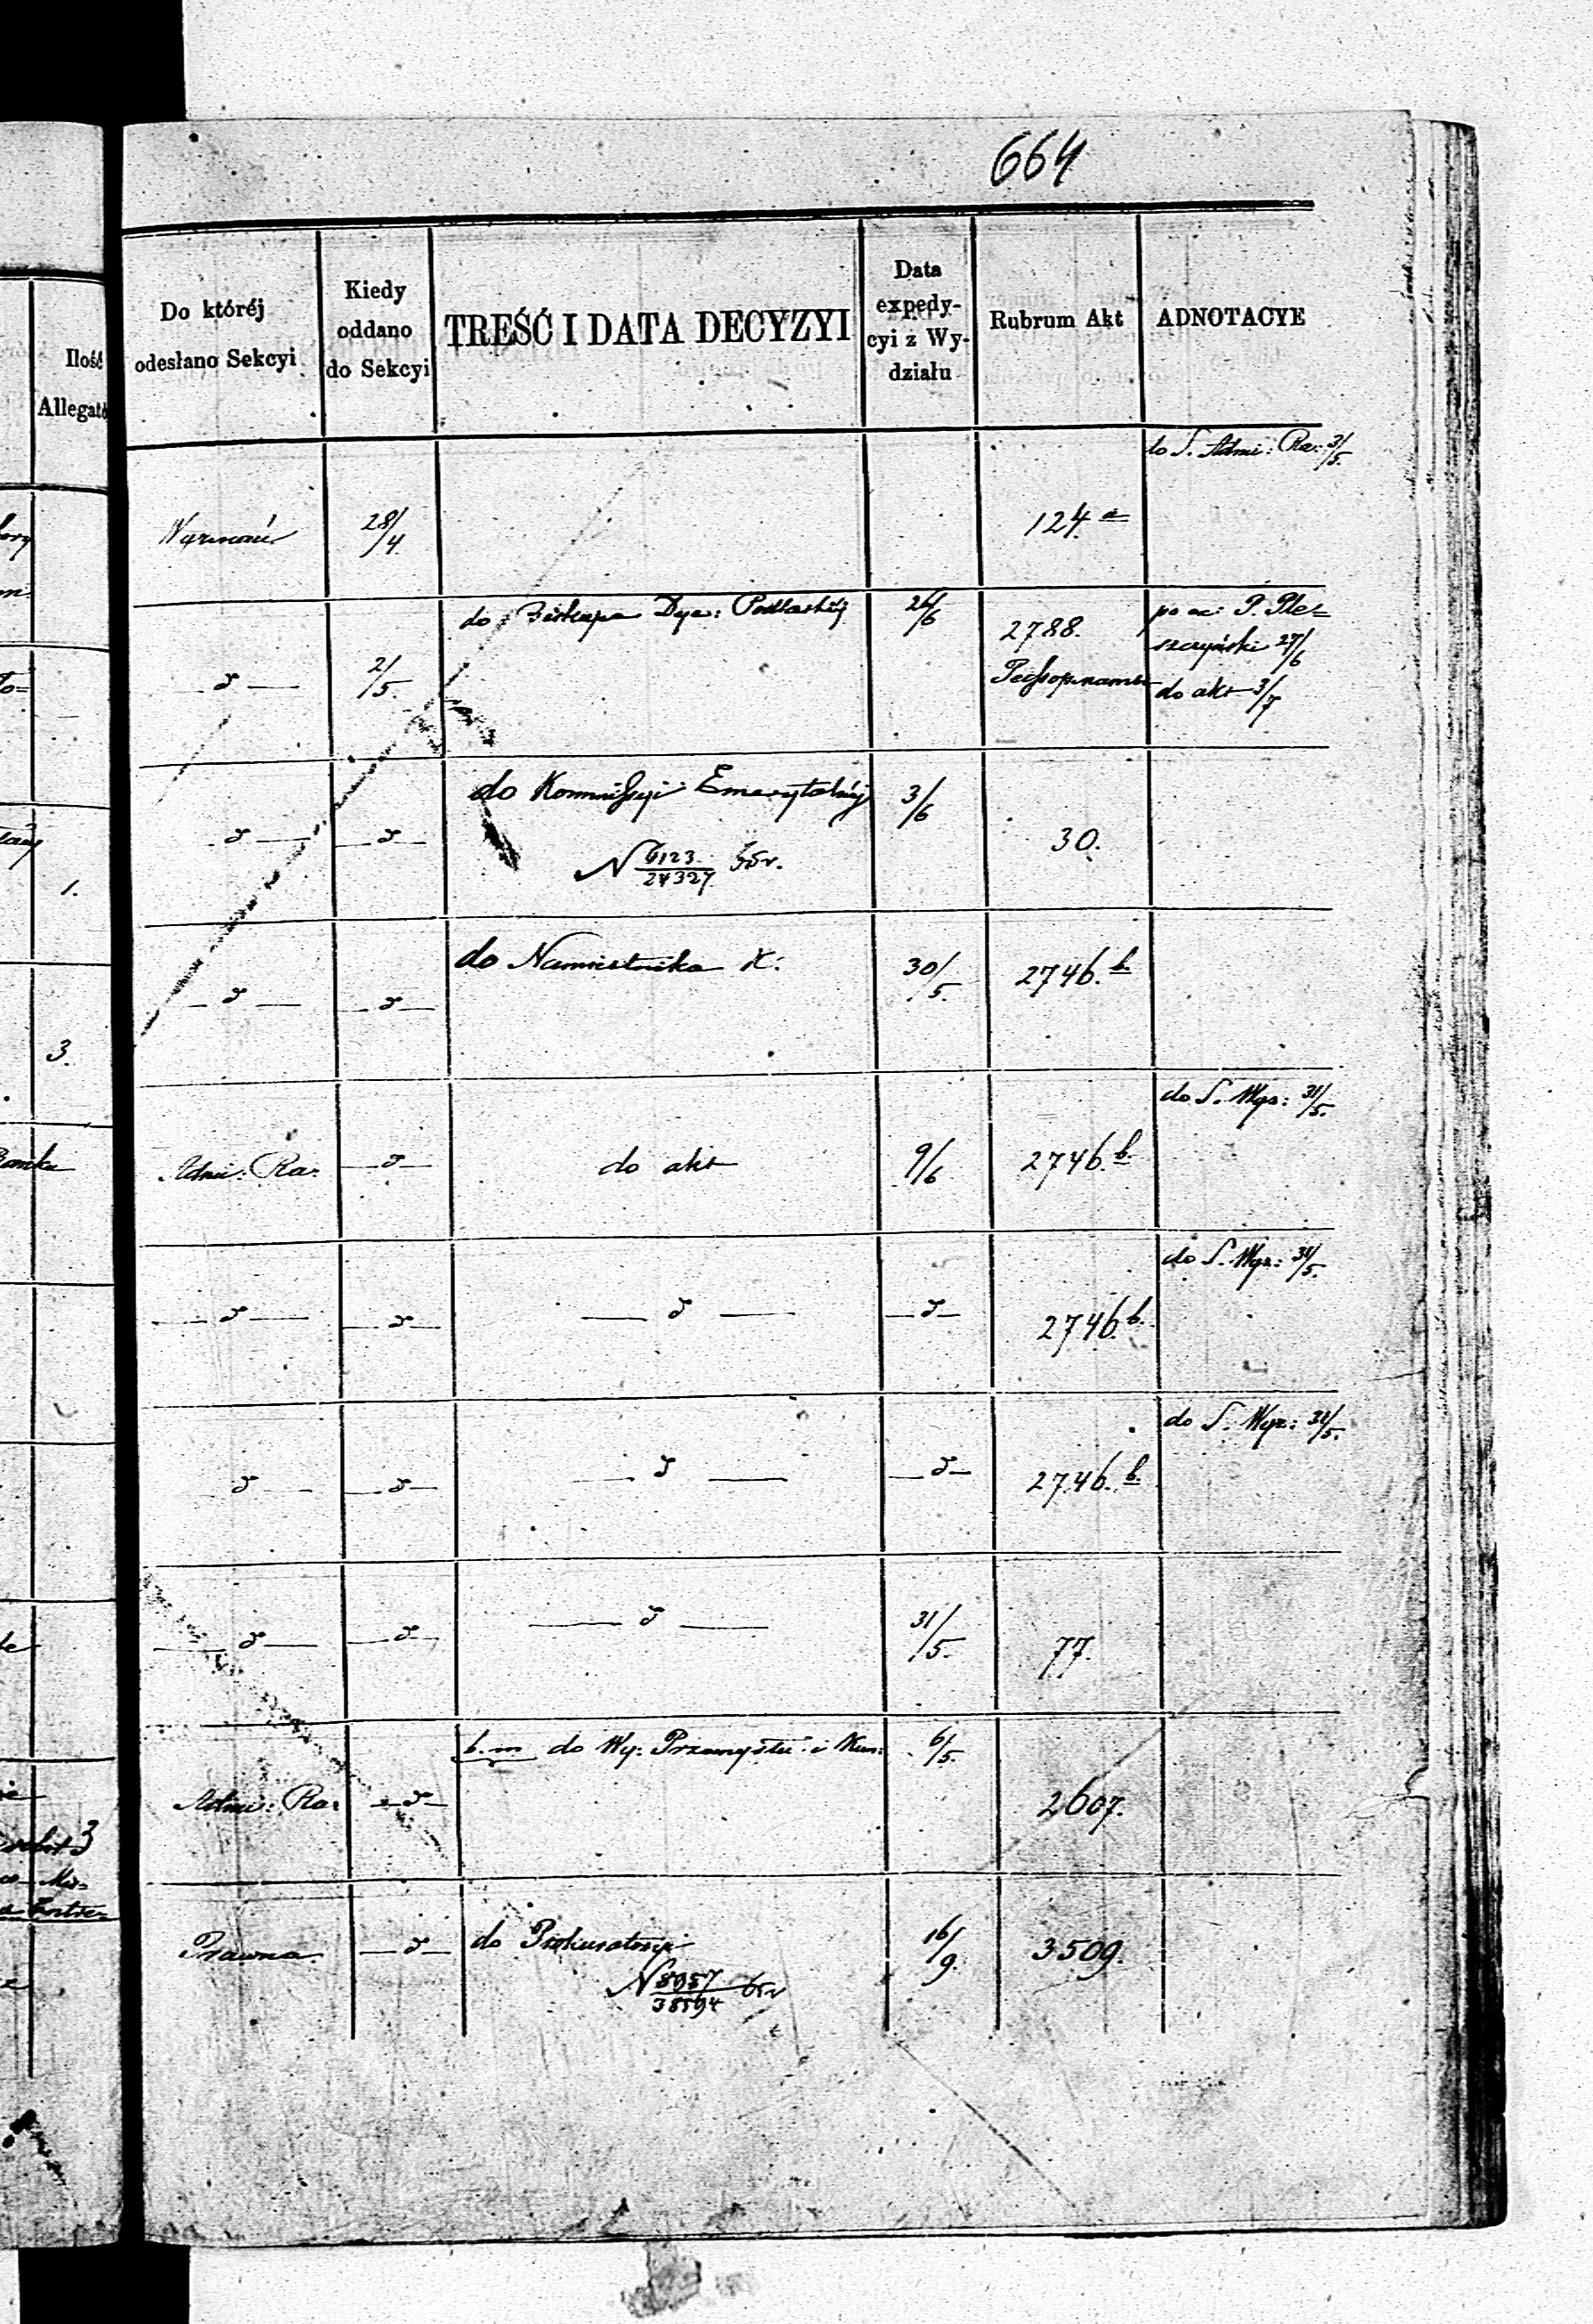 664
Ilość
Allegató
Do któréj
odesłano Sekcyi
Kiedy
oddano
do Sekcyi
TREŚĆ I DATA DECYZYI
Data
expedy-
cyi z Wy-
działu
Rubrum Akt
ADNOTACYE
do S. Admi: Ra: 3/5.
Wyznań
28/4.
124.a
do Biskupa Dye: Podlaskiéj
26/6
2788.
po ac: P. Ple=
szczyński 27/6
do akt 3/7
— d —
2/5.
do Kommissyi Emerytalnéj
3/6
— d —
— d —
30.
N 6123/24327 65r.
1.
do Namiestnika K:
30/5.
2746.b.
— d —
— d —
3.
do S. Wyz: 31/5.
Admi: Ra:
— d —
do akt
9/6.
2746.b.
do S. Wyz: 31/5.
— d —
— d —
— d —
— d —
2746.b.
do S. Wyz: 31/5.
d —
— d —
— d —
— d —
2746.b.
— d —
— d —
— d —
31/5.
77.
b. m do Wy: Przemysłu i Kun:
6/5.
Admi: Ra:
— d —
2607.
3
Prawna.
— d —
do Prokuratoryi
16/9.
3509.
N 8957/38594 65r